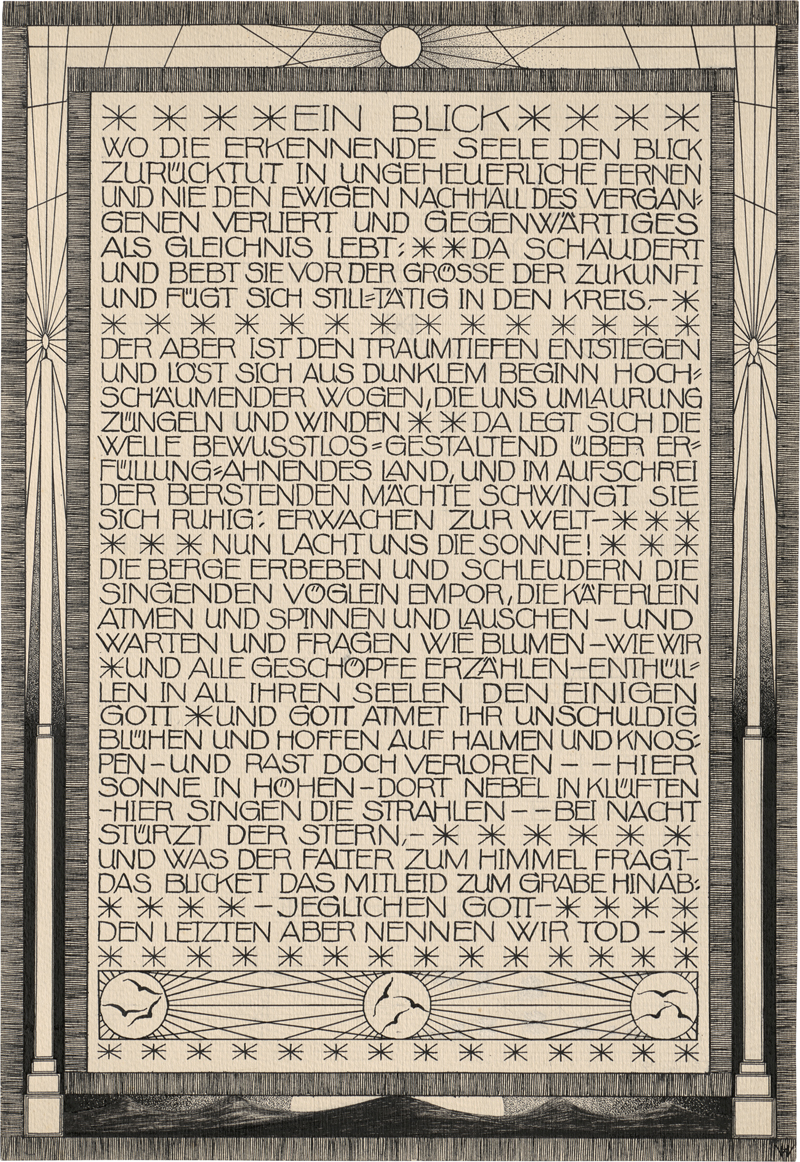 EIN BLICK
WO DIE ERKENNENDE SEELE DEN BLICK
ZURÜCKTUT IN UNGEHEUERLICHE FERNEN
UND NIE DEN EWIGEN NACHHALL DES VERGAN=
GENEN VERLIERT UND GEGENWÄRTIGES
ALS GLEICHNIS LEBT: * * DA SCHAUDERT
UND BEBT SIE VOR DER GRÖSSE DER ZUKUNFT
UND FÜGT SICH STILL=TÄTIG IN DEN KREIS.— *
DER ABER IST DEN TRAUMTIEFEN ENTSTIEGEN
UND LÖST SICH AUS DUNKLEM BEGINN HOCH=
SCHÄUMENDER WOGEN, DIE UNS UMLAURUNG
ZÜNGELN UND WINDEN * * DA LEGT SICH DIE
WELLE BEWUSSTLOS=GESTALTEND ÜBER ER=
FÜLLUNG=AHNENDES LAND, UND IM AUFSCHREI
DER BERSTENDEN MÄCHTE SCHWINGT SIE
SICH RUHIG: ERWACHEN ZUR WELT— * * *
* * * NUN LACHT UNS DIE SONNE! * * *
DIE BERGE ERBEBEN UND SCHLEUDERN DIE
SINGENDEN VÖGLEIN EMPOR, DIE KÄFERLEIN
ATMEN UND SPINNEN UND LAUSCHEN — UND
WARTEN UND FRAGEN WIE BLUMEN — WIE WIR
* UND ALLE GESCHÖPFE ERZÄHLEN — ENTHÜL=
LEN IN ALL IHREN SEELEN DEN EINIGEN
GOTT * UND GOTT ATMET IHR UNSCHULDIG
BLÜHEN UND HOFFEN AUF HALMEN UND KNOS=
PEN — UND RAST DOCH VERLOREN — — HIER
SONNE IN HÖHEN — DORT NEBEL IN KLÜFTEN
— HIER SINGEN DIE STRAHLEN — — BEI NACHT
STÜRZT DER STERN,— * * * * * *
UND WAS DER FALTER ZUM HIMMEL FRAGT—
DAS BLICKET DAS MITLEID ZUM GRABE HINAB:
* * * * — JEGLICHEN GOTT — * * * *
DEN LETZTEN ABER NENNEN WIR TOD — *